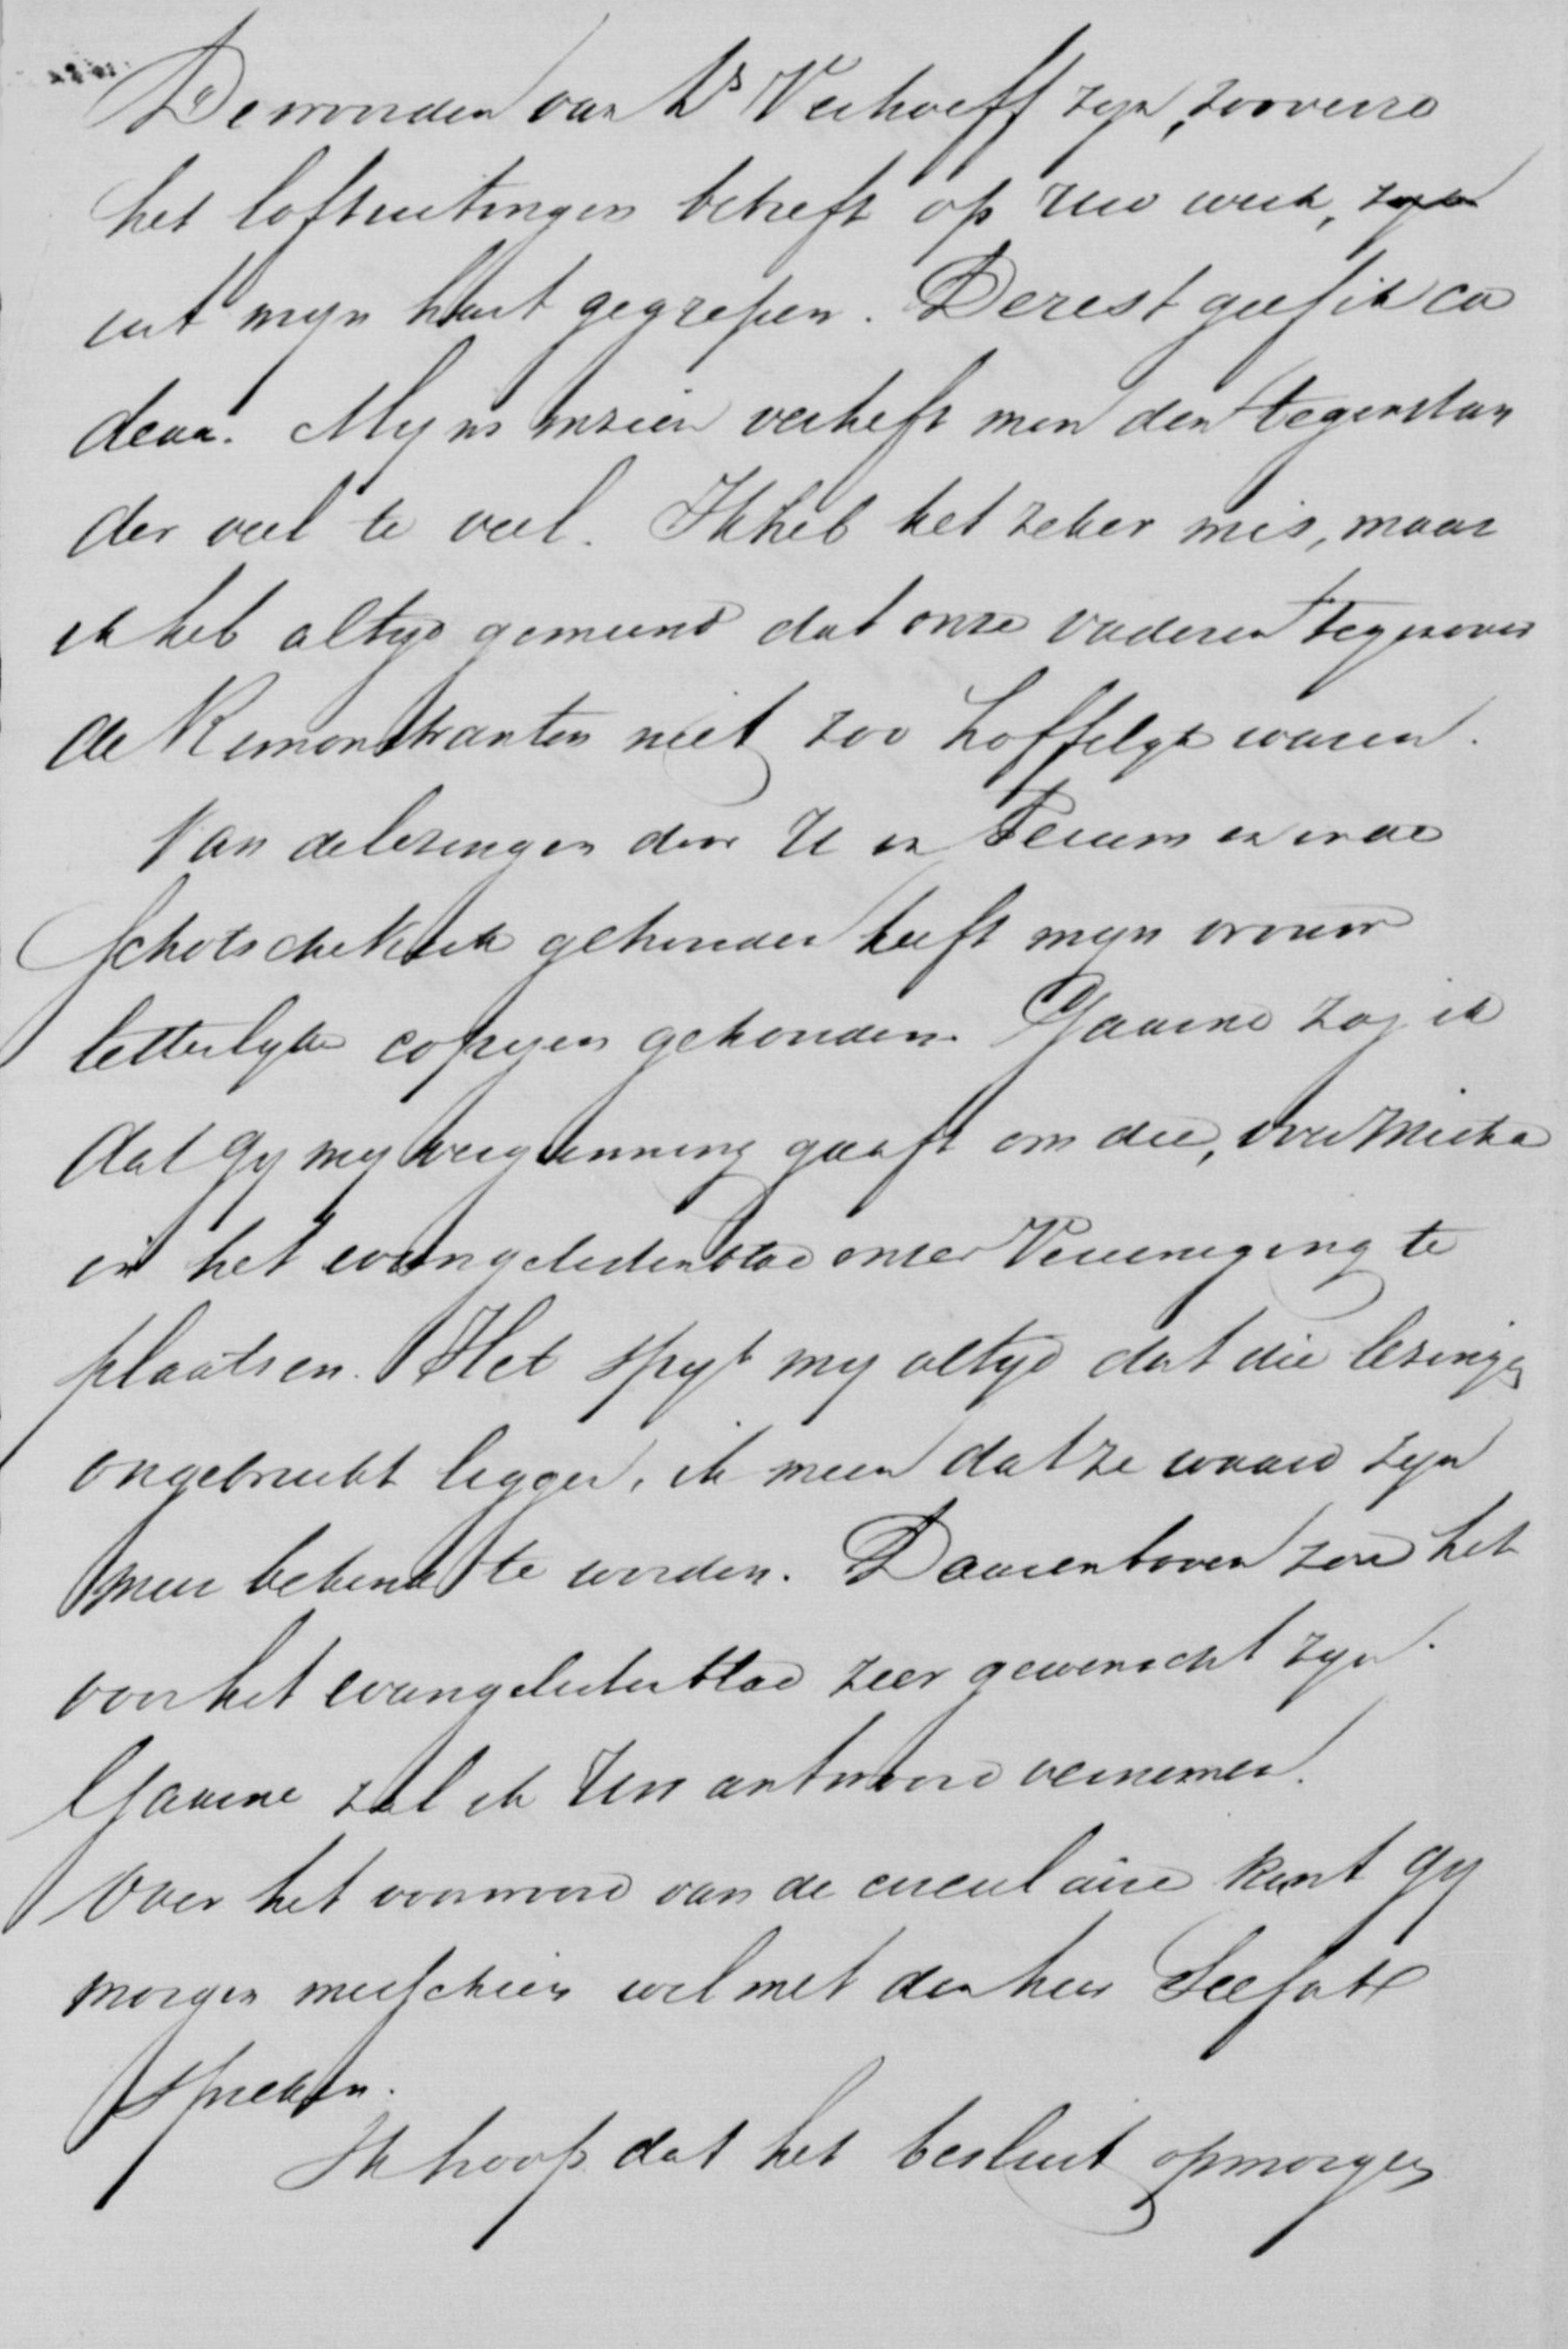 De woorden van Ds Verhoeff zyn, zooverre
het loftuitingen betreft op Uw werk, zyn
uit myn hart gegrepen. De rest geef ik ca
deau. Myns inziens verheft men den tegenstan
der veel te veel. Ik heb het zeker mis, maar
ik heb altyd gemeend dat onze vaderen tegenover
de Remonstranten niet zoo hoffelyk waren.
Van de lezingen door U en in de
Schotsche Kerk gehouden heeft myn vrouw
letterlyke copyen gehouden. Gaarne zag ik
dat gy my vergunning gaaft om die, over Micha
in het evangelistenblad onzer Vereeniging te
plaatsen. Het spyt my altyd dat die lezingen
ongebruikt liggen, ik meen dat ze waard zyn
meer bekend te worden. Daarenboven zou het
voor het evangelistenblad zeer gewenscht zyn.
Gaarne zal ik Uw antwoord vernemen.
Over het voorwoord van de circulaire kunt gy
morgen misschien wel met den heer Seefat
spreken.
Ik hoop dat het besluit op morgen